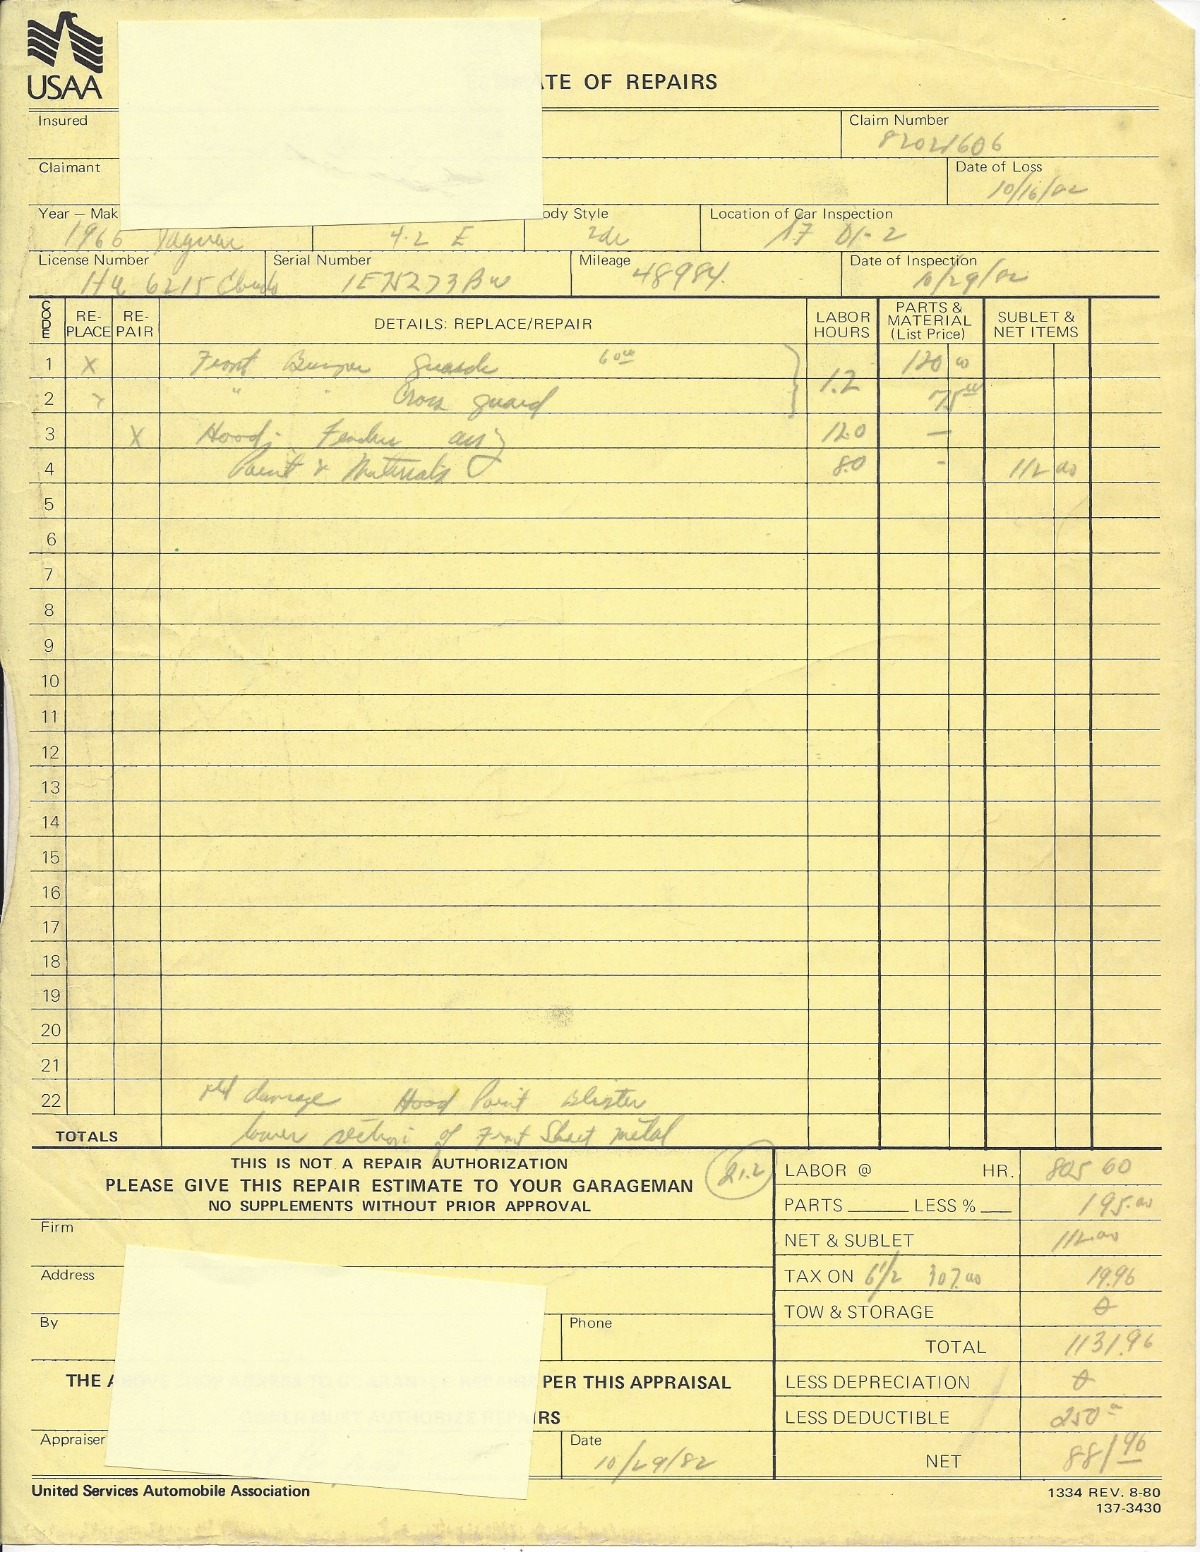 USAA
ATE OF REPAIRS
Insured
Claim Number
82021606
Claimant
Date of Loss
10/16/82
Year – Mak
ody Style
Location of Car Inspection
1966 Jaguar 4.2 E 2dr 17 DI-2
License Number
Serial Number
Mileage
Date of Inspection
6215 1E75273BW 48984. 10/29/82
CODE RE-PLACE RE-PAIR DETAILS: REPLACE/REPAIR LABOR HOURS PARTS & MATERIAL (List Price) SUBLET & NET ITEMS
1 X Front Bumper guards 60 00 1.2 120 00
2 " " Cross guard 75 00
3 X Hood, Fender assy 12.0 —
4 Paint & Materials 8.0 - 112 00
5
6
7
8
9
10
11
12
13
14
15
16
17
18
19
20
21
22 old damage Hood Paint Blister
TOTALS lower section of Front Sheet metal
THIS IS NOT A REPAIR AUTHORIZATION
PLEASE GIVE THIS REPAIR ESTIMATE TO YOUR GARAGEMAN
NO SUPPLEMENTS WITHOUT PRIOR APPROVAL
21.2
LABOR @ HR. 805 60
PARTS ______ LESS % ___ 195.00
NET & SUBLET 112.00
TAX ON 6 1/2 307.00 19.96
TOW & STORAGE 0
TOTAL 1131.96
LESS DEPRECIATION 0
LESS DEDUCTIBLE 250
NET 881 96
Firm
Address
By
Phone
THE A
PER THIS APPRAISAL
IRS
Appraiser
Date
10/29/82
United Services Automobile Association
1334 REV. 8-80
137-3430